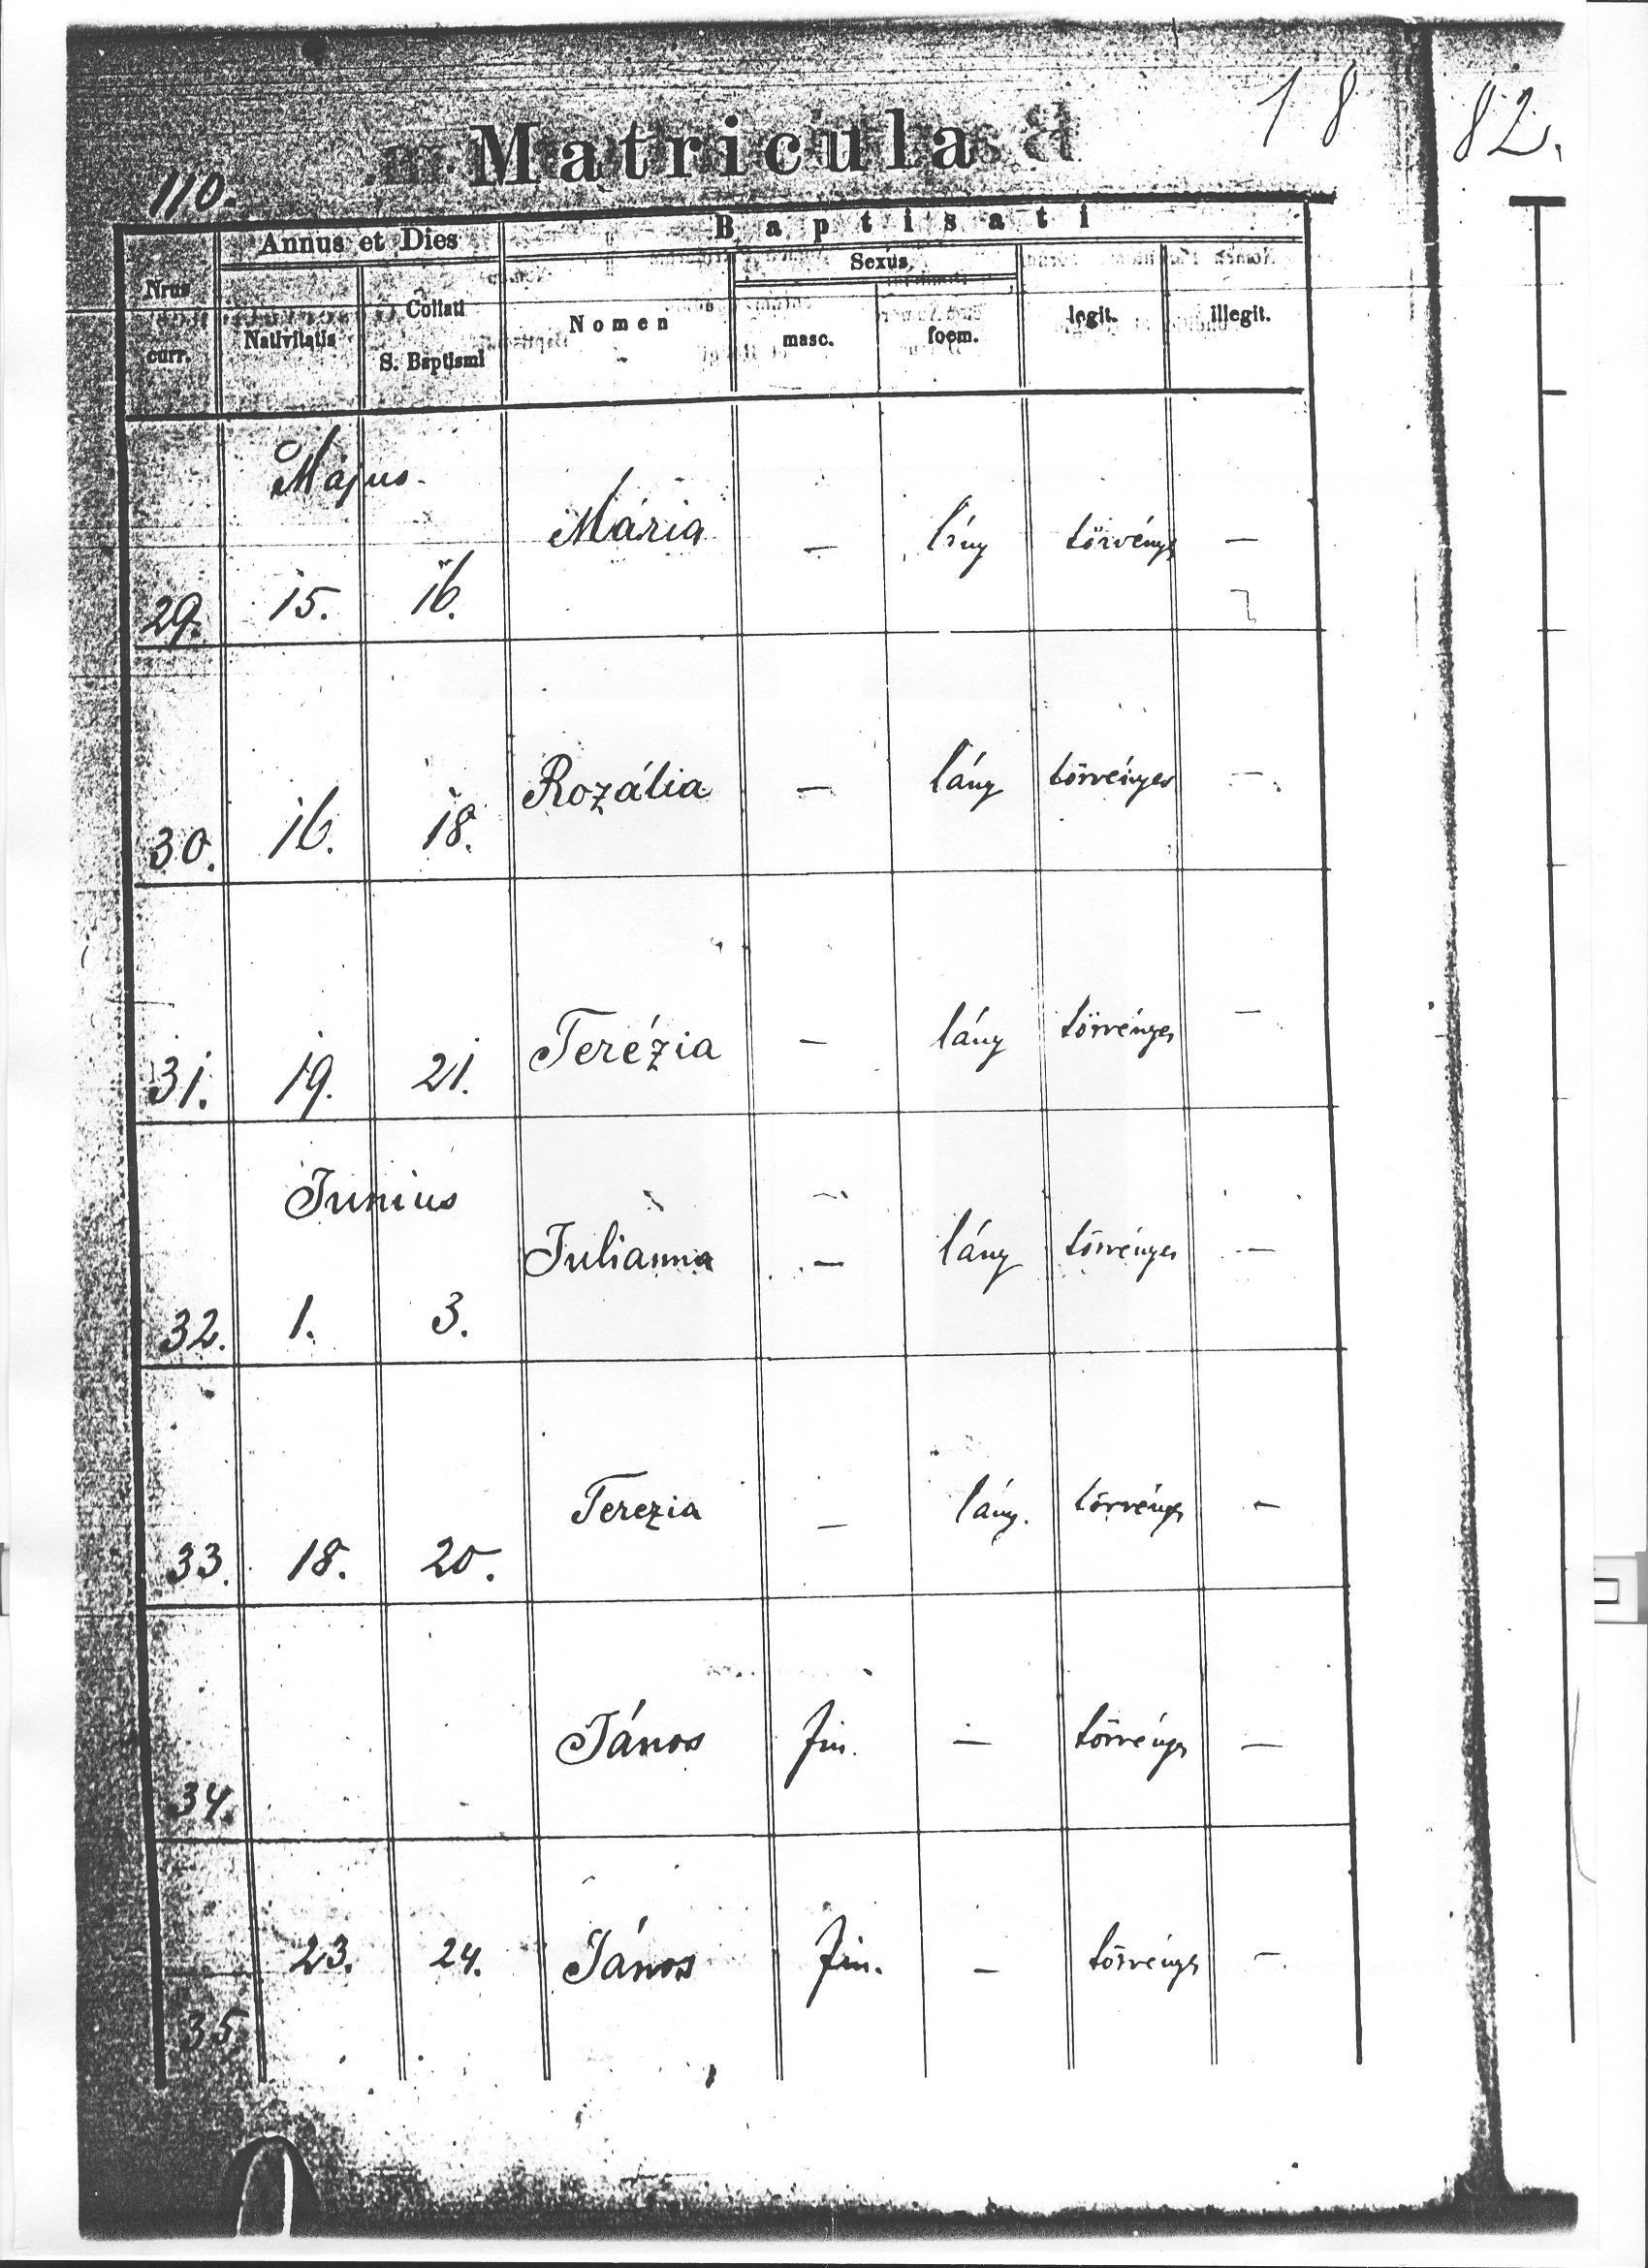 18 82.
Matricula
110.
Annus et Dies
Baptisati
Nrus
curr.
Nativitatis
Collati
S. Baptismi
Nomen
Sexus
masc.
foem.
legit.
illegit.
Május.
29. 15. 16. Mária — lány törvényes —
30. 16. 18. Rozália — lány törvényes —
31. 19. 21. Terézia — lány törvényes —
Junius
32. 1. 3. Julianna — lány törvényes —
33. 18. 20. Terezia — lány. törvényes —
34. János fiu. — törvényes —
35. 23. 24. János fiu. — törvényes —